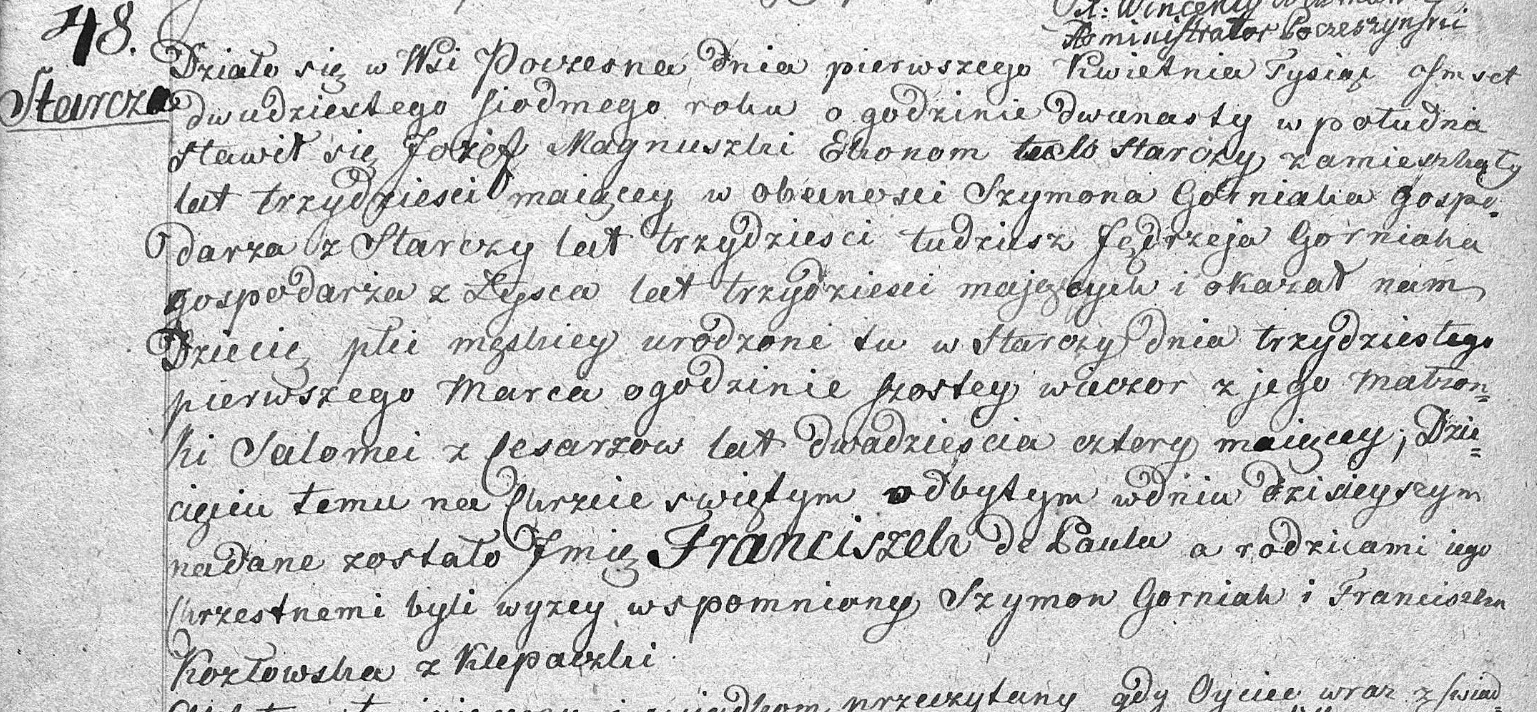 X: Wincenty
Administrator Poczeszyński
48.
Starcza
Działo się w Wsi Poczesna dnia pierwszego Kwietnia Tysiąc osmset
dwudziestego siodmego roku o godzinie dwunasty w południa
stawił się Jozef Magnuszki Ekonom Starczy zamieszkały
lat trzydziesci maiącey w obecnosci Szymona Gorniaka gospo-
darza z Starczy lat trzydziesci tudziesz Jędrzeja Gorniaka
gospodarza z Łysca lat trzydziesci mających i okazał nam
Dziecię płci męskiey urodzone tu w Starczy dnia trzydziestego
pierwszego Marca o godzinie szostey wieczor z jego Małżon=
ki Salomei z Cesarzow lat dwadziescia cztery maiącey; Dzie=
cięciu temu na Chrzcie swiętym odbytym w dniu dzisieyszym
nadane zostało Jmię Franciszek de Paula a rodzicami iego
Chrzestnemi byli wyzey wspomniony Szymon Gorniak i Franciszka
Kozłowska z Klepaczki
przeczytany gdy Oyciec wraz z swiad